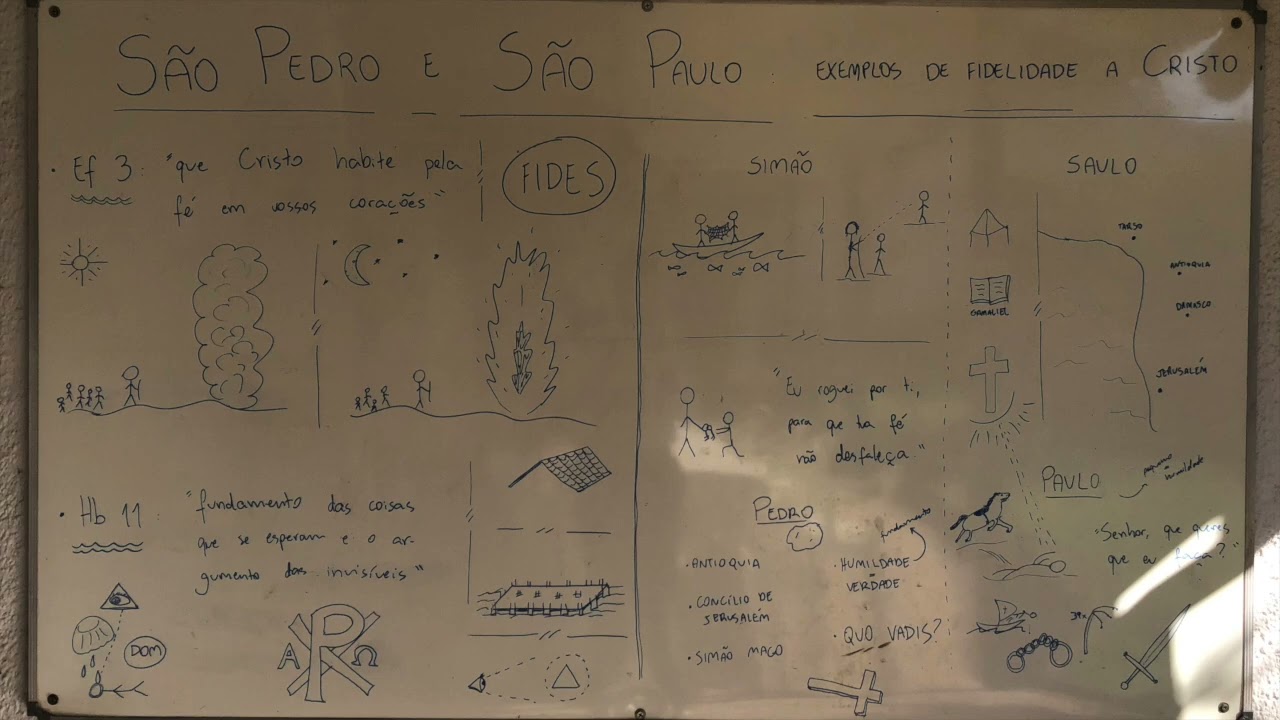 SÃO PEDRO E SÃO PAULO: EXEMPLOS DE FIDELIDADE A CRISTO.
• Ef 3: "que Cristo habite pela
fé em vossos corações"
FIDES
• Hb 11: "fundamento das coisas
que se esperam e o ar-
gumento das invisíveis"
DOM
Α Ω
SIMÃO
"Eu roguei por ti,
para que tua fé
não desfaleça."
PEDRO
fundamento
• ANTIOQUIA
• CONCÍLIO DE
JERUSALÉM
• SIMÃO MAGO
• HUMILDADE
VERDADE
• QUO VADIS?
SAULO
GAMALIEL
TARSO
ANTIOQUIA
DAMASCO
JERUSALÉM
PAULO
pequeno
humildade
"Senhor, que queres
que eu faça?"